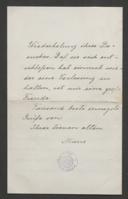 Wiederholung ihres Be-
suches. Daß sie sich ent-
schlossen hat einmal wie-
der eine Vorlesung zu
halten, ist mir eine große
Freude.
Tausend beste innigste
Grüße von
Ihrer treuen alten
Marie